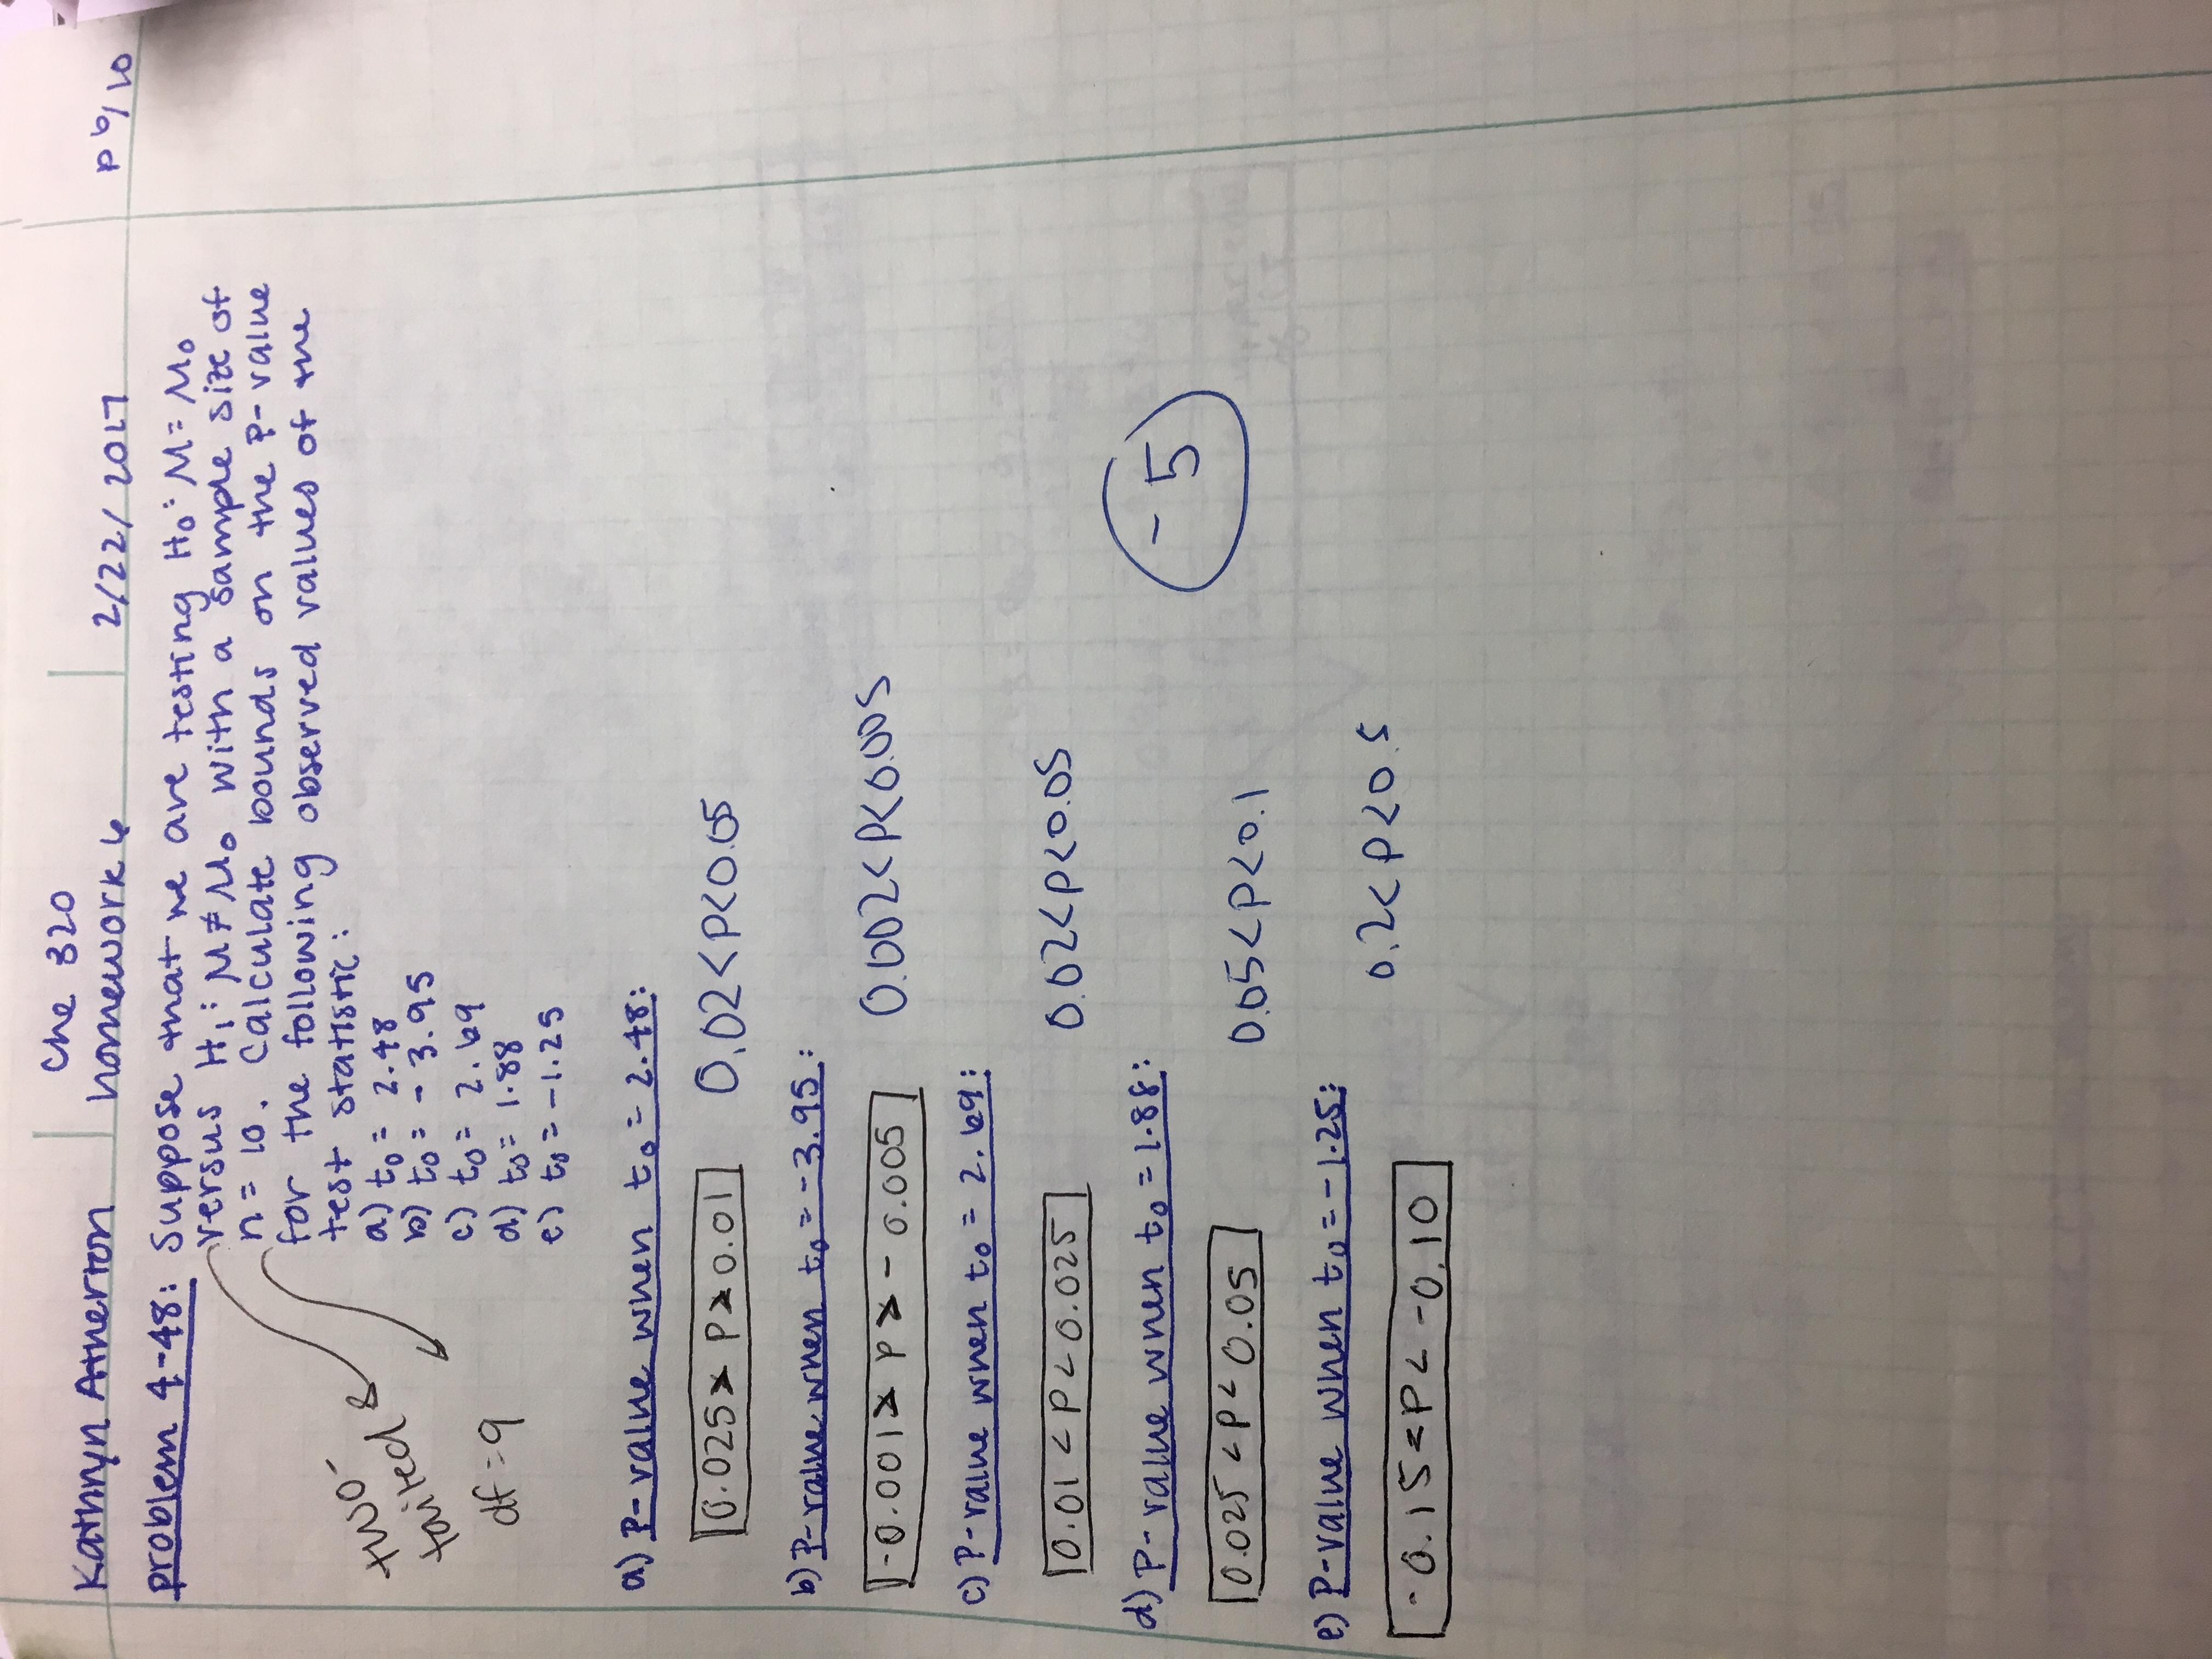 Kathryn Atherton
Che 320
homework 6
2/22/2017
p 6/10
problem 4-48: Suppose that we are testing H₀: M = M₀
versus H₁: M ≠ M₀ with a sample size of
n = 10. Calculate bounds on the P-value
for the following observed values of the
test statistic:
a) t₀ = 2.48
b) t₀ = - 3.95
c) t₀ = 2.69
d) t₀ = 1.88
e) t₀ = -1.25
two-
tailed
df = 9
a) P-value when t₀ = 2.48:
0.025 > P > 0.01 0.02 < P < 0.05
b) P-value when t₀ = -3.95:
-0.001 > P > - 0.005 0.002 < P < 0.005
c) P-value when t₀ = 2.69:
0.01 < P < 0.025 0.02 < P < 0.05
d) P-value when t₀ = 1.88:
- 5
0.025 < P < 0.05 0.05 < P < 0.1
e) P-value when t₀ = -1.25:
-0.15 < P < -0.10 0.2 < P < 0.5